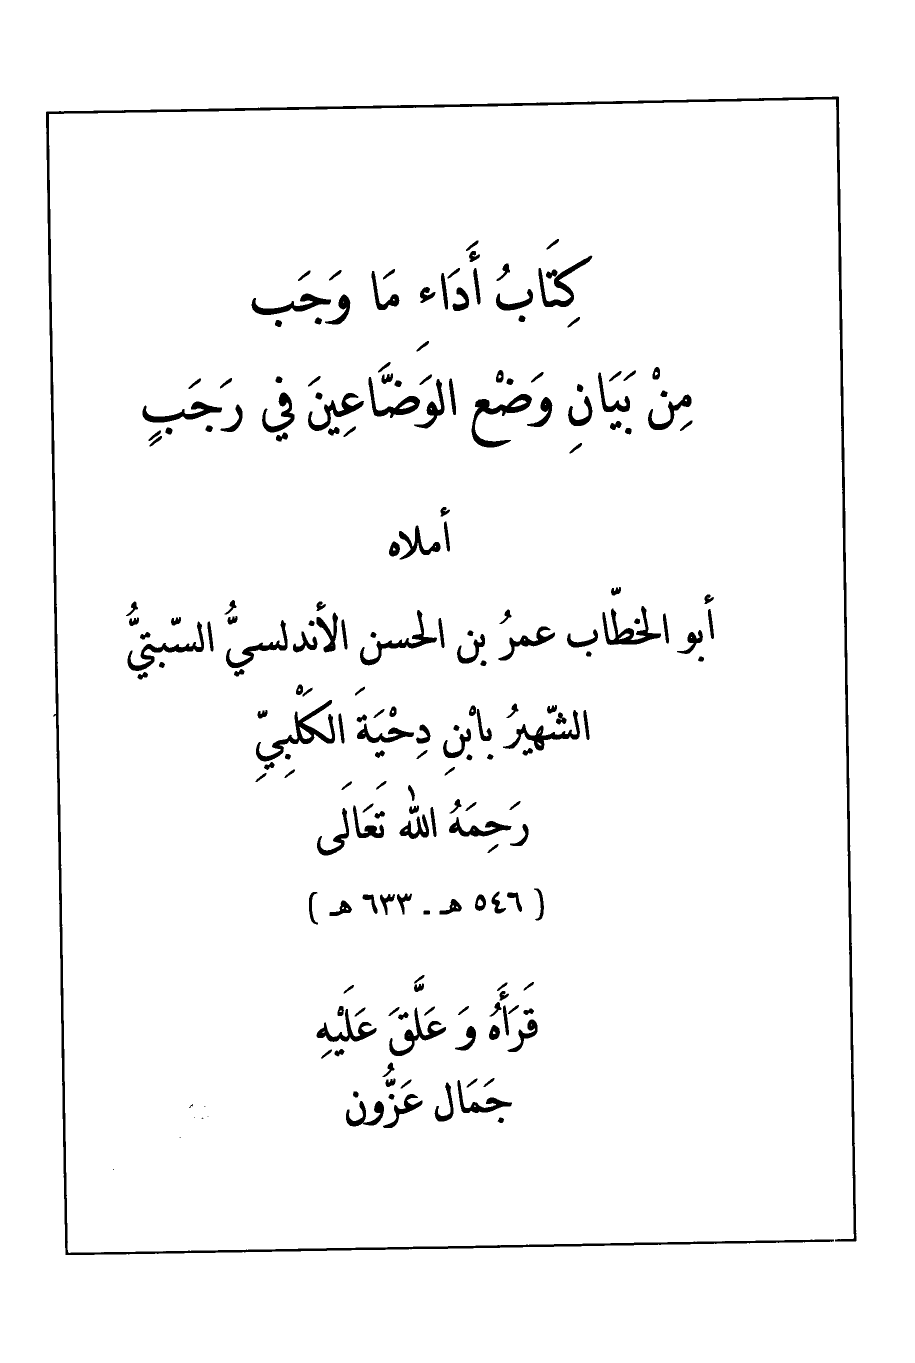 كِتَابُ أَدَاءِ مَا وَجَب
مِنْ بَيَانِ وَضْعِ الوَضَّاعِينَ فِي رَجَبٍ
أملاه
أبو الخطّاب عمرُ بن الحسن الأندلسيُّ السّبتيُّ
الشّهيرُ بابْنِ دِحْيَةَ الكَلْبِيِّ
رَحِمَهُ اللهُ تَعَالَى
( ٥٤٦ هـ ـ ٦٣٣ هـ )
قَرَأَهُ وَ عَلَّقَ عَلَيْهِ
جَمَال عَزُّون